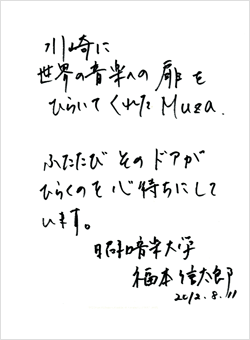 川崎に
世界の音楽への扉を
ひらいてくれた Muza.
ふたたび そのドアが
ひらくのを 心待ちにして
います。
昭和音楽大学
福本信太郎
2012.8.11